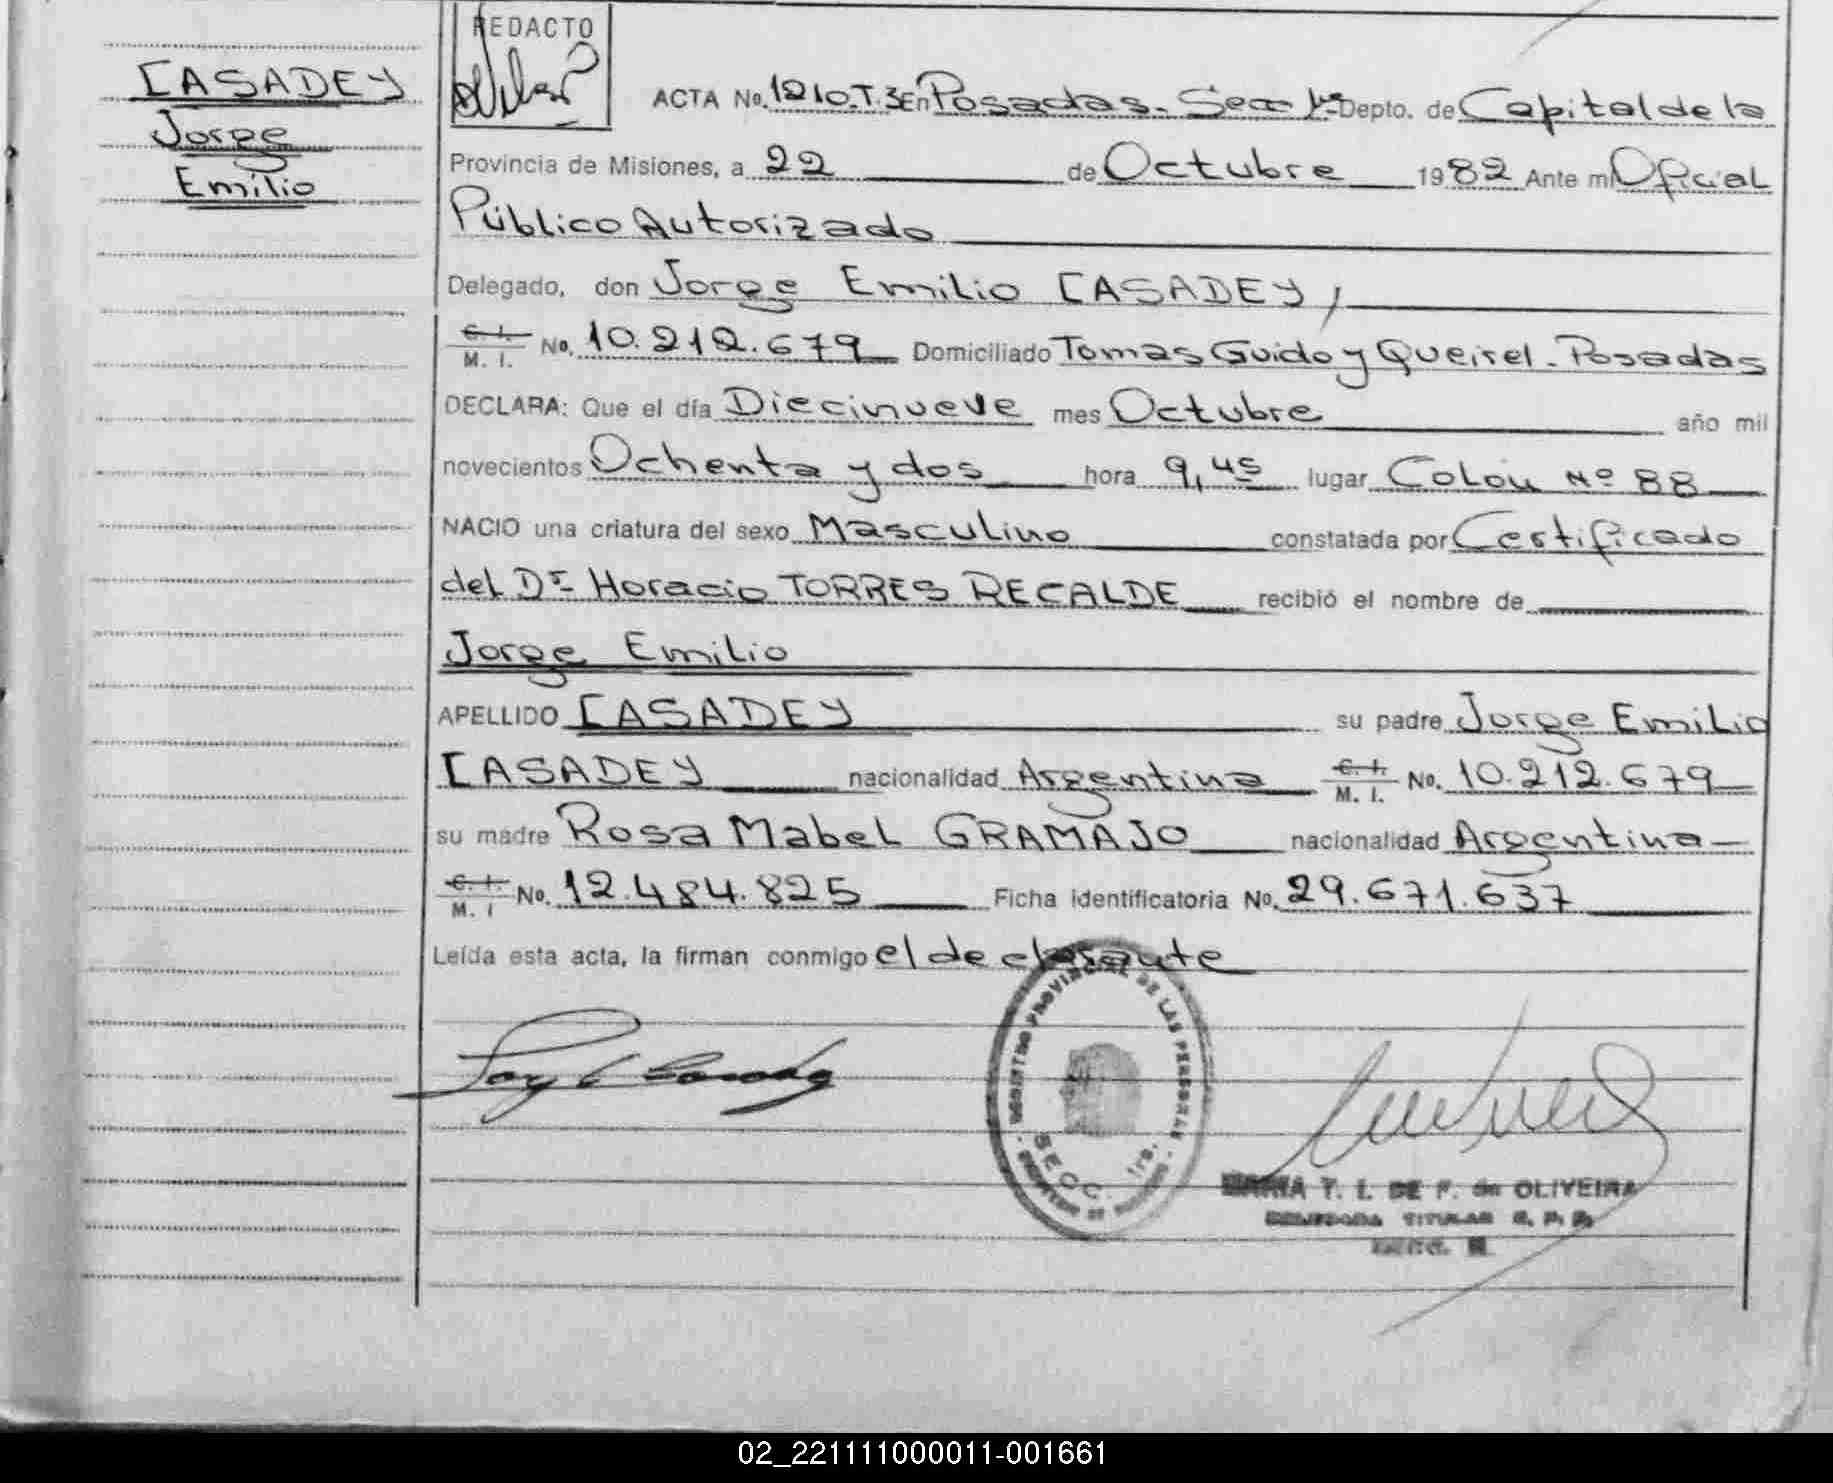 CASADEY
Jorge
Emilio
REDACTO
ACTA No. 1210.T.3 En Posadas. Secc 1ra Depto. de Capital de la
Provincia de Misiones, a 22 de Octubre 1982 Ante mi Oficial
Público Autorizado
Delegado, don Jorge Emilio CASADEY,
C. I. / M. I. No. 10.212.679 Domiciliado Tomas Guido y Queirel - Posadas
DECLARA: Que el día Diecinueve mes Octubre año mil
novecientos Ochenta y dos hora 9,45 lugar Colón Nº 88
NACIO una criatura del sexo Masculino constatada por Certificado
del Dr Horacio TORRES RECALDE recibió el nombre de
Jorge Emilio
APELLIDO CASADEY su padre Jorge Emilio
CASADEY nacionalidad Argentina C. I. / M. I. No. 10.212.679
su madre Rosa Mabel GRAMAJO nacionalidad Argentina
C. I. / M. I No. 12.484.825 Ficha identificatoria No. 29.671.637
Leída esta acta, la firman conmigo el declarante
REGISTRO PROVINCIAL DE LAS PERSONAS
SECC. 1ra.
MARIA T. I. DE F. de OLIVEIRA
DELEGADA TITULAR R. P. P.
02_221111000011-001661